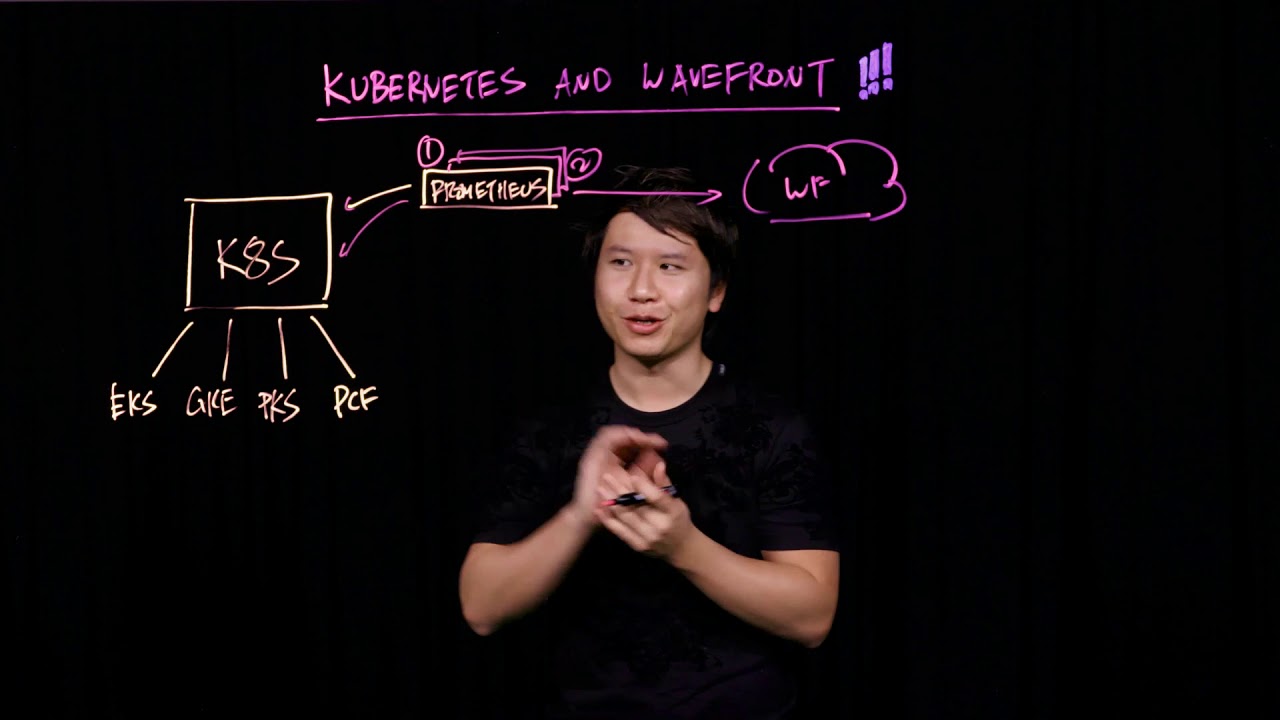 KUBERNETES AND WAVEFRONT !!!
1
2
PROMETHEUS
WF
K8S
EKS GKE PKS PCF